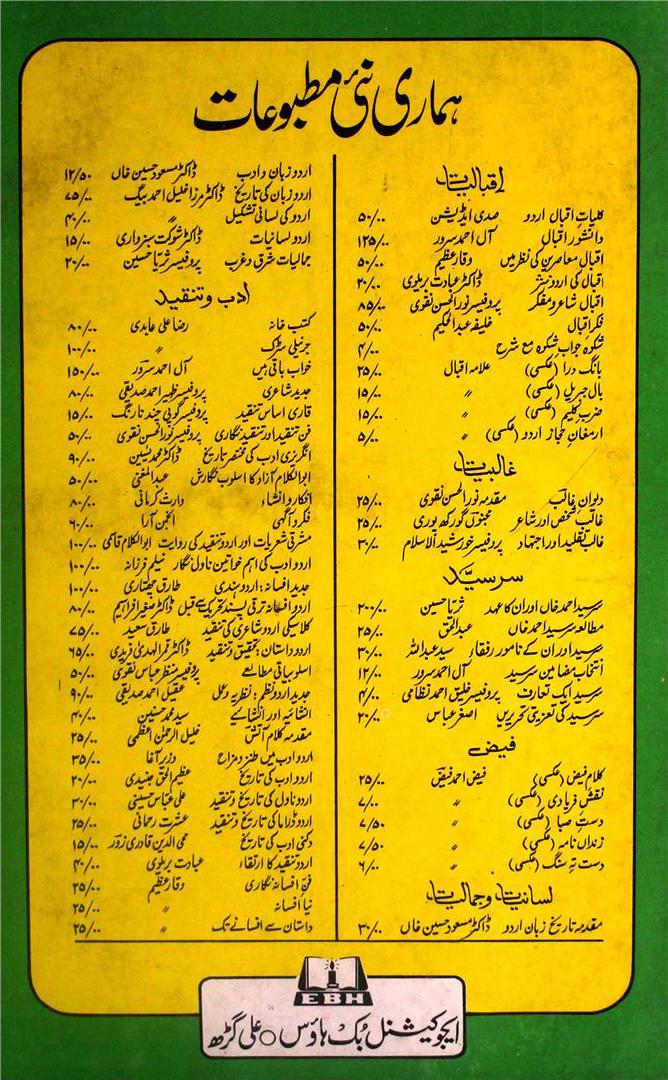 ہماری نئی مطبوعات
اقبالیات
کلیات اقبال اردو صدی ایڈیشن ۵۰/۰۰
دانشور اقبال آل احمد سرور ۱۲۵/۰۰
اقبال معاصرین کی نظر میں وقار عظیم ۵۰/۰۰
اقبال کی اردو نثر ڈاکٹر عبادت بریلوی ۲۰/۰۰
اقبال شاعر و مفکر پروفیسر نورالحسن نقوی ۸۵/۰۰
فکر اقبال خلیفہ عبدالحکیم ۵۰/۰۰
شکوہ جواب شکوہ مع شرح ۴/۰۰
بانگ درا (عکسی) علامہ اقبال ۲۵/۰۰
بال جبریل (عکسی) 〃 ۱۵/۰۰
ضرب کلیم (عکسی) 〃 ۱۵/۰۰
ارمغان حجاز اردو (عکسی) 〃 ۵/۰۰
غالبیات
دیوان غالب مقدمہ نورالحسن نقوی ۲۵/۰۰
غالب شخص اور شاعر مجنوں گورکھپوری ۲۵/۰۰
غالب تقلید اور اجتہاد پروفیسر خورشید الاسلام ۳۰/۰۰
سرسید
سرسید احمد خاں اور ان کا عہد ثریا حسین ۲۰۰/۰۰
مطالعہ سرسید احمد خاں عبدالحق ۲۵/۰۰
سرسید اور ان کے نامور رفقاء سید عبداللہ ۳۰/۰۰
انتخاب مضامین سرسید آل احمد سرور ۱۲/۰۰
سرسید ایک تعارف پروفیسر خلیق احمد نظامی ۴/۰۰
سرسید کی تعزیتی تحریریں اصغر عباس ۲۰/۰۰
فیض
کلام فیض (عکسی) فیض احمد فیض ۲۵/۰۰
نقش فریادی (عکسی) 〃 ۷/۰۰
دست صبا (عکسی) 〃 ۷/۵۰
زنداں نامہ (عکسی) 〃 ۷/۵۰
دست تہ سنگ (عکسی) 〃 ۶/۰۰
لسانیات و جمالیات
مقدمہ تاریخ زبان اردو ڈاکٹر مسعود حسین خاں ۳۰/۰۰
اردو زبان و ادب ڈاکٹر مسعود حسین خاں ۱۲/۵۰
اردو زبان کی تاریخ ڈاکٹر مرزا خلیل احمد بیگ ۷۵/۰۰
اردو کی لسانی تشکیل 〃 ۴۰/۰۰
اردو لسانیات ڈاکٹر شوکت سبزواری ۱۵/۰۰
جمالیات شرق و غرب پروفیسر ثریا حسین ۲۰/۰۰
ادب و تنقید
کتب خانہ رضا علی عابدی ۸۰/۰۰
جرنیلی سڑک 〃 ۱۰۰/۰۰
خواب باقی ہیں آل احمد سرور ۱۵۰/۰۰
جدید شاعری پروفیسر ظہیر احمد صدیقی ۸۰/۰۰
قاری اساس تنقید پروفیسر گوپی چند نارنگ ۱۵/۰۰
فن تنقید اور تنقید نگاری پروفیسر نورالحسن نقوی ۵۰/۰۰
انگریزی ادب کی مختصر تاریخ ڈاکٹر محمد یٰسین ۹۰/۰۰
ابوالکلام آزاد کا اسلوب نگارش عبدالمغنی ۵۰/۰۰
افکار و انشاء وارث کرمانی ۸۰/۰۰
فکر و آگہی انجمن آرا ۶۰/۰۰
مشرقی شعریات اور اردو تنقید کی روایت ابوالکلام قاسمی ۱۰۰/۰۰
اردو ادب کی اہم خواتین ناول نگار نیلم فرزانہ ۱۰۰/۰۰
جدید افسانہ: اردو ہندی طارق چھتاری ۱۰۰/۰۰
اردو افسانہ ترقی پسند تحریک سے قبل ڈاکٹر صغیر افراہیم ۸۰/۰۰
کلاسیکی اردو شاعری کی تنقید طارق سعید ۷۵/۰۰
اردو داستان: تحقیق و تنقید ڈاکٹر قمرالہدیٰ فریدی ۶۵/۰۰
اسلوبیاتی مطالعے پروفیسر منظر عباس نقوی ۵۰/۰۰
جدید اردو نظم: نظریہ و عمل عقیل احمد صدیقی ۹۰/۰۰
انشائیہ اور انشائیے سید محمد حسنین ۴۰/۰۰
مقدمہ کلام آتش خلیل الرحمٰن اعظمی ۲۵/۰۰
اردو ادب میں طنز و مزاح وزیر آغا ۳۵/۰۰
اردو ادب کی تاریخ عظیم الحق جنیدی ۲۰/۰۰
اردو ناول کی تاریخ و تنقید علی عباس حسینی ۳۰/۰۰
اردو ڈراما کی تاریخ و تنقید عشرت رحمانی ۲۵/۰۰
دکنی ادب کی تاریخ محی الدین قادری زور ۱۵/۰۰
اردو تنقید کا ارتقاء عبادت بریلوی ۴۰/۰۰
فن افسانہ نگاری وقار عظیم ۲۵/۰۰
نیا افسانہ 〃 ۲۵/۰۰
داستان سے افسانے تک 〃 ۲۵/۰۰
EBH
ایجوکیشنل بک ہاؤس ○ علی گڑھ